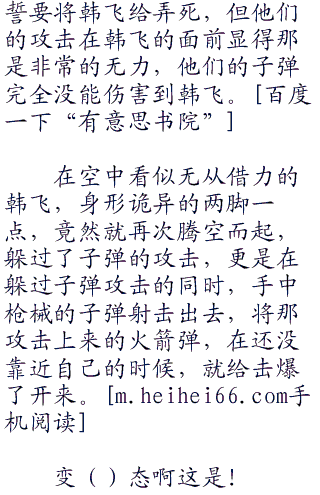 誓要将韩飞给弄死，但他们
的攻击在韩飞的面前显得那
是非常的无力，他们的子弹
完全没能伤害到韩飞。[百度
一下“有意思书院”]
在空中看似无从借力的
韩飞，身形诡异的两脚一
点，竟然就再次腾空而起，
躲过了子弹的攻击，更是在
躲过子弹攻击的同时，手中
枪械的子弹射击出去，将那
攻击上来的火箭弹，在还没
靠近自己的时候，就给击爆
了开来。[m.heihei66.com手
机阅读]
变（）态啊这是！